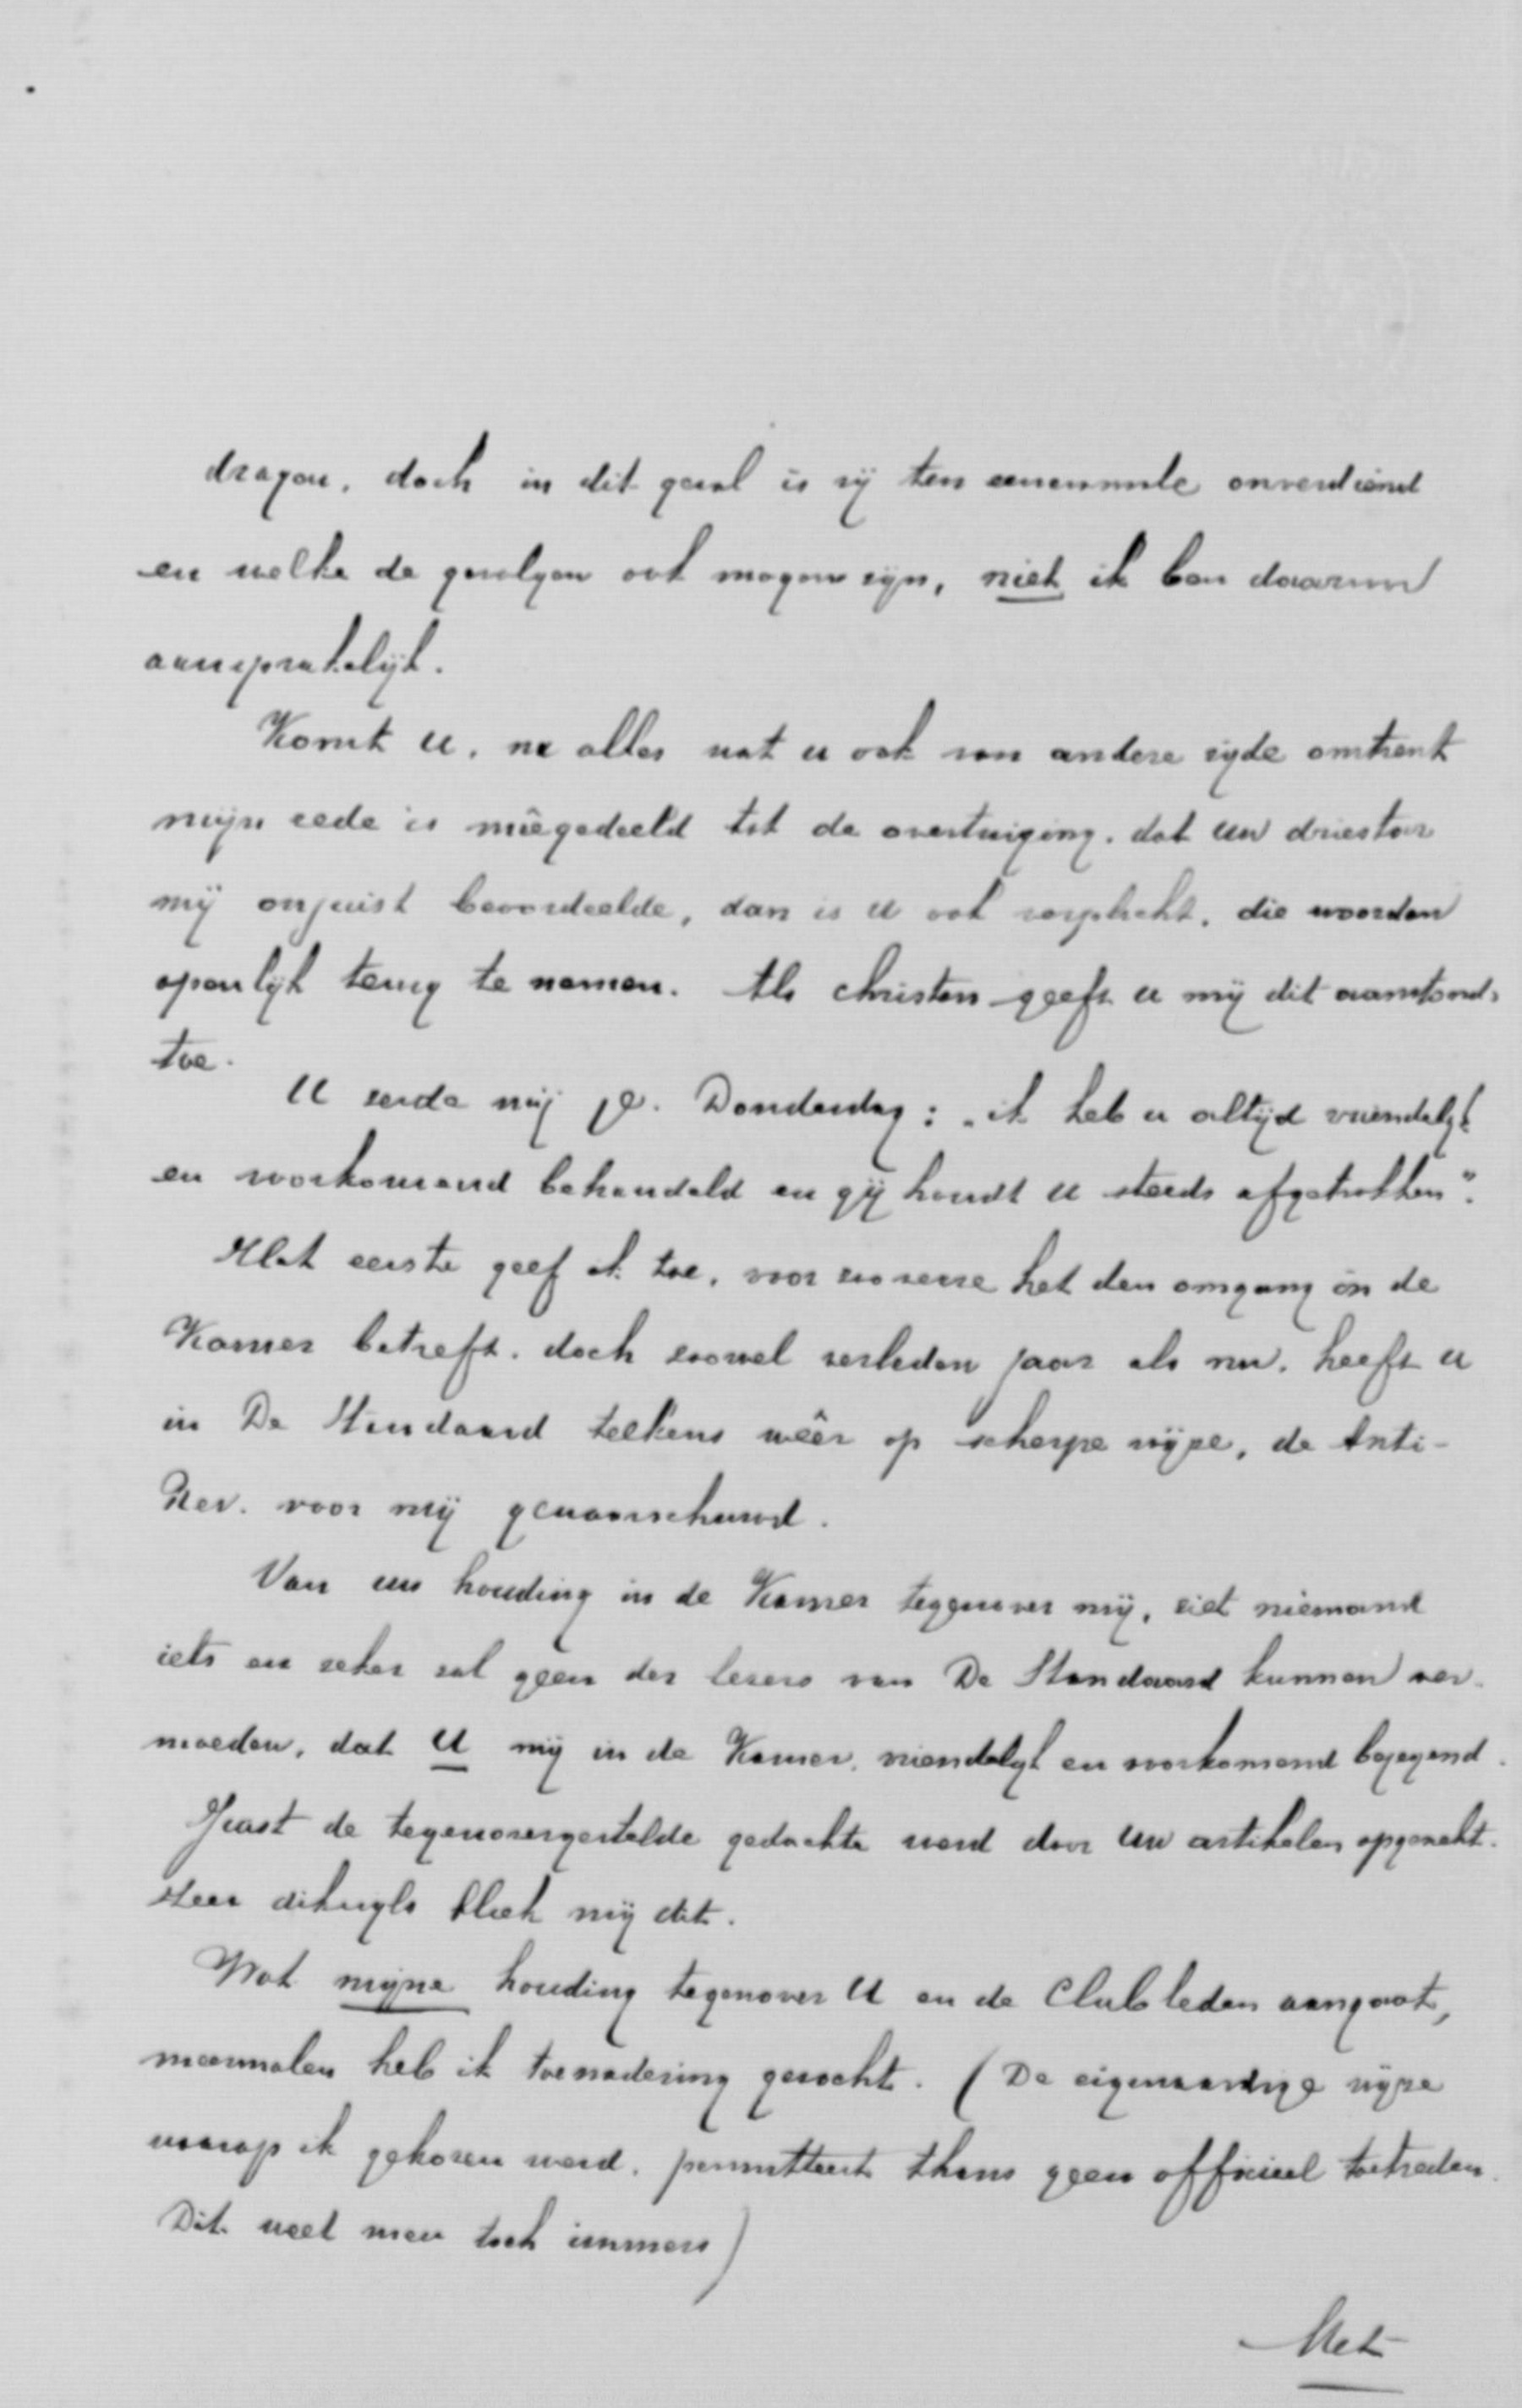 dragen, doch in dit geval is zij ten eenenmale onverdiend
en welke de gevolgen ook mogen zijn, niet ik ben daarvoor
aansprakelijk.
Komt U, na alles wat u ook van andere zijde omtrent
mijn rede is meêgedeeld tot de overtuiging, dat uw driestar
mij onjuist beoordeelde, dan is U ook verplicht, die woorden
openlijk terug te nemen. Als christen geeft u mij dit aanstonds
toe.
U zeide mij j.l. Donderdag: "ik heb u altijd vriendelijk
en voorkomend behandeld en gij houdt U steeds afgetrokken".
Het eerste geef ik toe, voor zooverre het den omgang in de
Kamer betreft, doch zoowel verleden jaar als nu, heeft U
in De Standaard telkens weêr op scherpe wijze, de Anti-
Rev. voor mij gewaarschuwd.
Van uw houding in de Kamer tegenover mij, ziet niemand
iets en zeker zal geen der lezers van De Standaard kunnen ver-
moeden, dat U mij in de Kamer, vriendelijk en voorkomend bejegend.
Juist de tegenovergestelde gedachte werd door Uw artikelen opgewekt.
Zeer dikwijls bleek mij dit.
Wat mijne houding tegenover U en de Clubleden aangaat,
meermalen heb ik toenadering gezocht. (De eigenaardige wijze
waarop ik gekozen werd, permitteert thans geen officieel toetreden.
Dit weet men toch immers)
Met